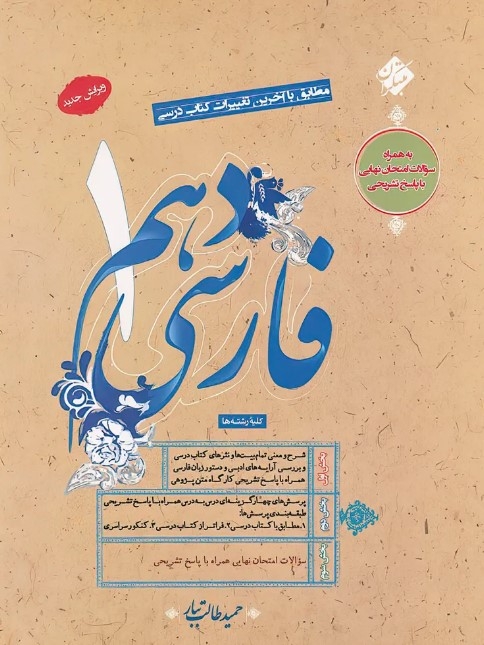 مبتکران
ویرایش جدید
مطابق با آخرین تغییرات کتاب درسی
به همراه
سؤالات امتحان نهایی
با پاسخ تشریحی
فارسی دهم ۱
کلیهٔ رشته‌ها
بخش اول
شرح و معنی تمام بیت‌ها و نثرهای کتاب درسی
و بررسی آرایه‌های ادبی و دستور زبان فارسی
همراه با پاسخ تشریحی کارگاه متن پژوهی
بخش دوم
پرسش‌های چهارگزینه‌ای درس به درس همراه با پاسخ تشریحی
طبقه‌بندی پرسش‌ها:
۱. مطابق با کتاب درسی ۲. فراتر از کتاب درسی ۳. کنکور سراسری
بخش سوم
سؤالات امتحان نهایی همراه با پاسخ تشریحی
حمید طالب تبار